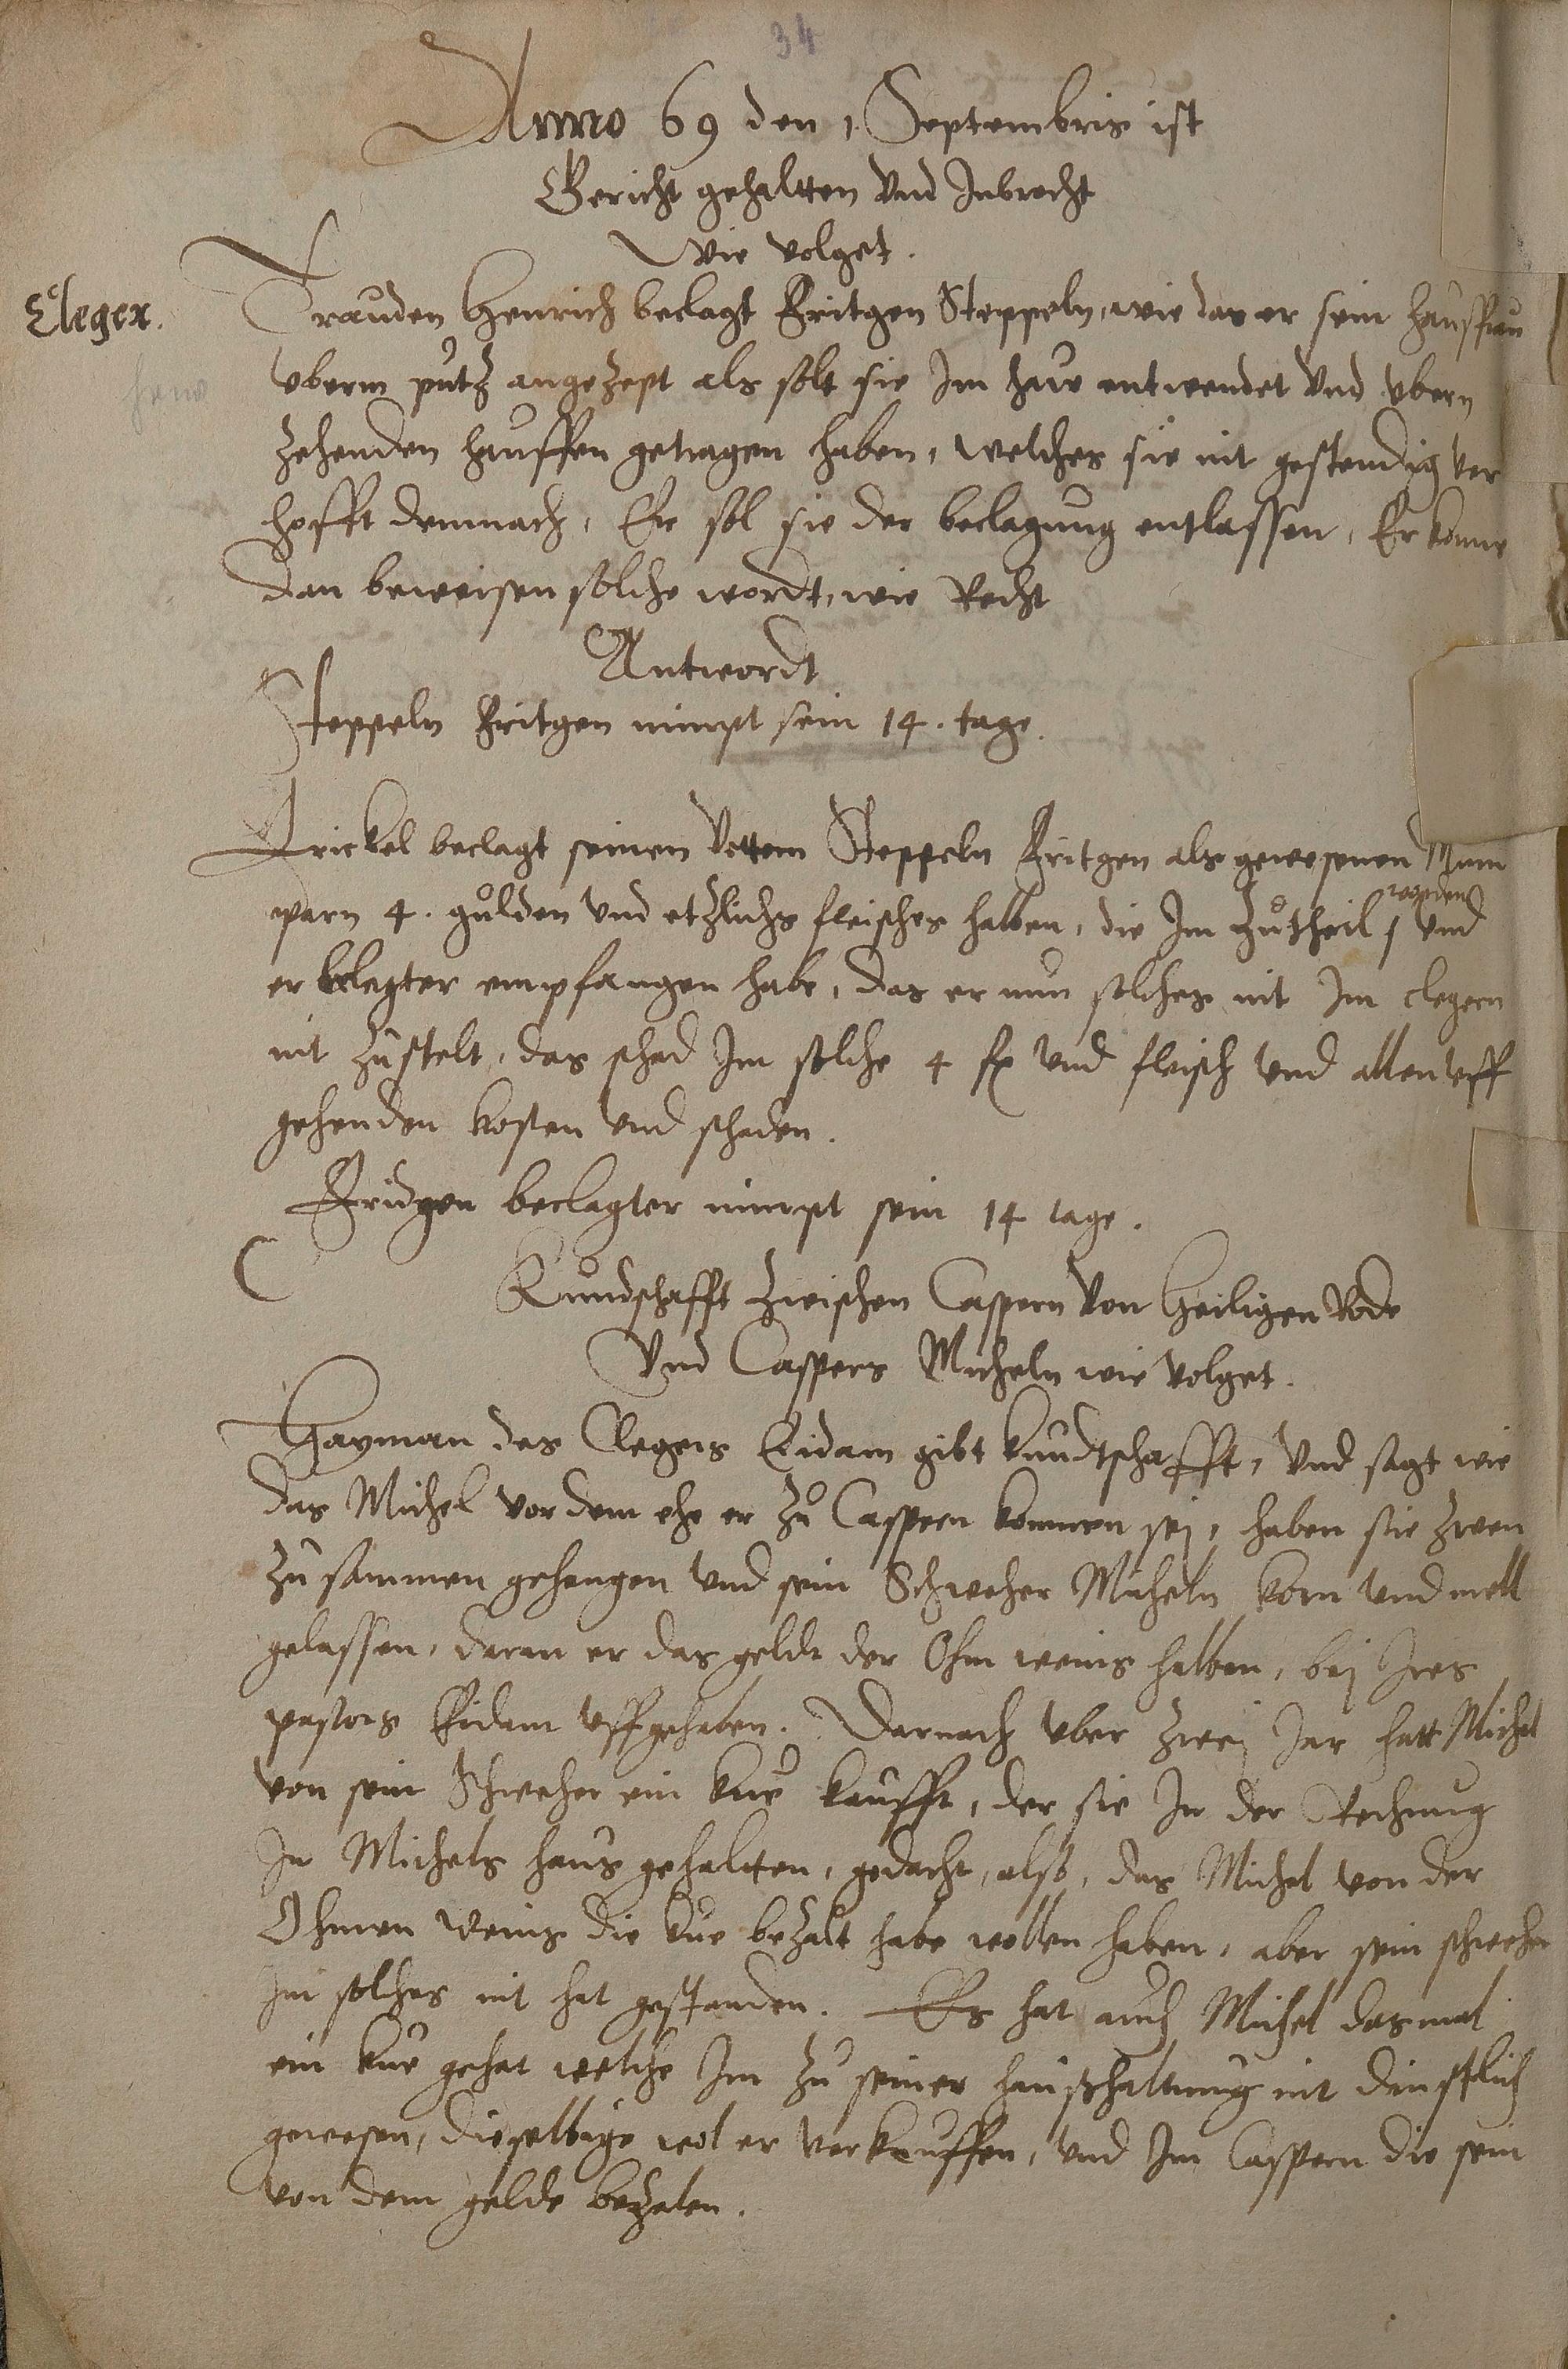 34
Anno 69 den 1. Septembris ist
Gericht gehaltten vnd Inbracht
wie volget.
Cleger.
Trauden Henrich beclagt Fritgen Steppeln, wie das er sein haussfrau
vberm putz angezept als solt sie Im haw entwendet vnd vbern
zehenden hauffen getragen haben, welches sie nit gestendig ver
hofft demnach, Er sol sie der beclagung entlassen, Er konne
dan beweisen solche wordt, wie Recht
Antwordt
Steppeln Fritgen nimpt sein 14. tage.
Frickel beclagt seinen Vettern Steppeln Fritgen als gewesenen Mum
parn 4. gulden vnd etzlichs fleisches halben, die Im zutheil worden vnd
er beclagter empfangen habe, das er nun solches nit Im clegern
nit zustelt, das schad Im solche 4 fl vnd fleisch vnd allen vff
gehenden kosten vnd schaden.
Fritgen beclagter nimpt sein 14 tage.
Kundschafft zwischen Caspern von Heiligen Rode
Vnd Caspers Micheln wie volget.
Hayman des Clegers Eidam gibt kundtschafft, vnd sagt wie
das Michel vor dem ehe er zu Caspern kommen sej, haben sie zwen
zusammen gehangen vnd sein Schweher Micheln korn vnd mell
gelassen, daran er das geldt der Ohm weins halben, bej Ires
pastors Eidam vffgehaben. Darnach vber zwej Jar hatt Michel
von sein Schweher ein kue kaufft, der sie In der Rechnung
In Michels haus gehaltten, gedacht, also, das Michel von der
Ohmen weins die kue bezalt habe wollen haben, aber sein schweher
Im solches nit hat gestanden. Es hat auch Michel dasmal
ein kue gehat welche Im zu seiner haußhaltung nit dinstlich
gewesen, dieselbige wol er verkauffen, vnd Im Caspern die sein
von dem gelde bezalen.